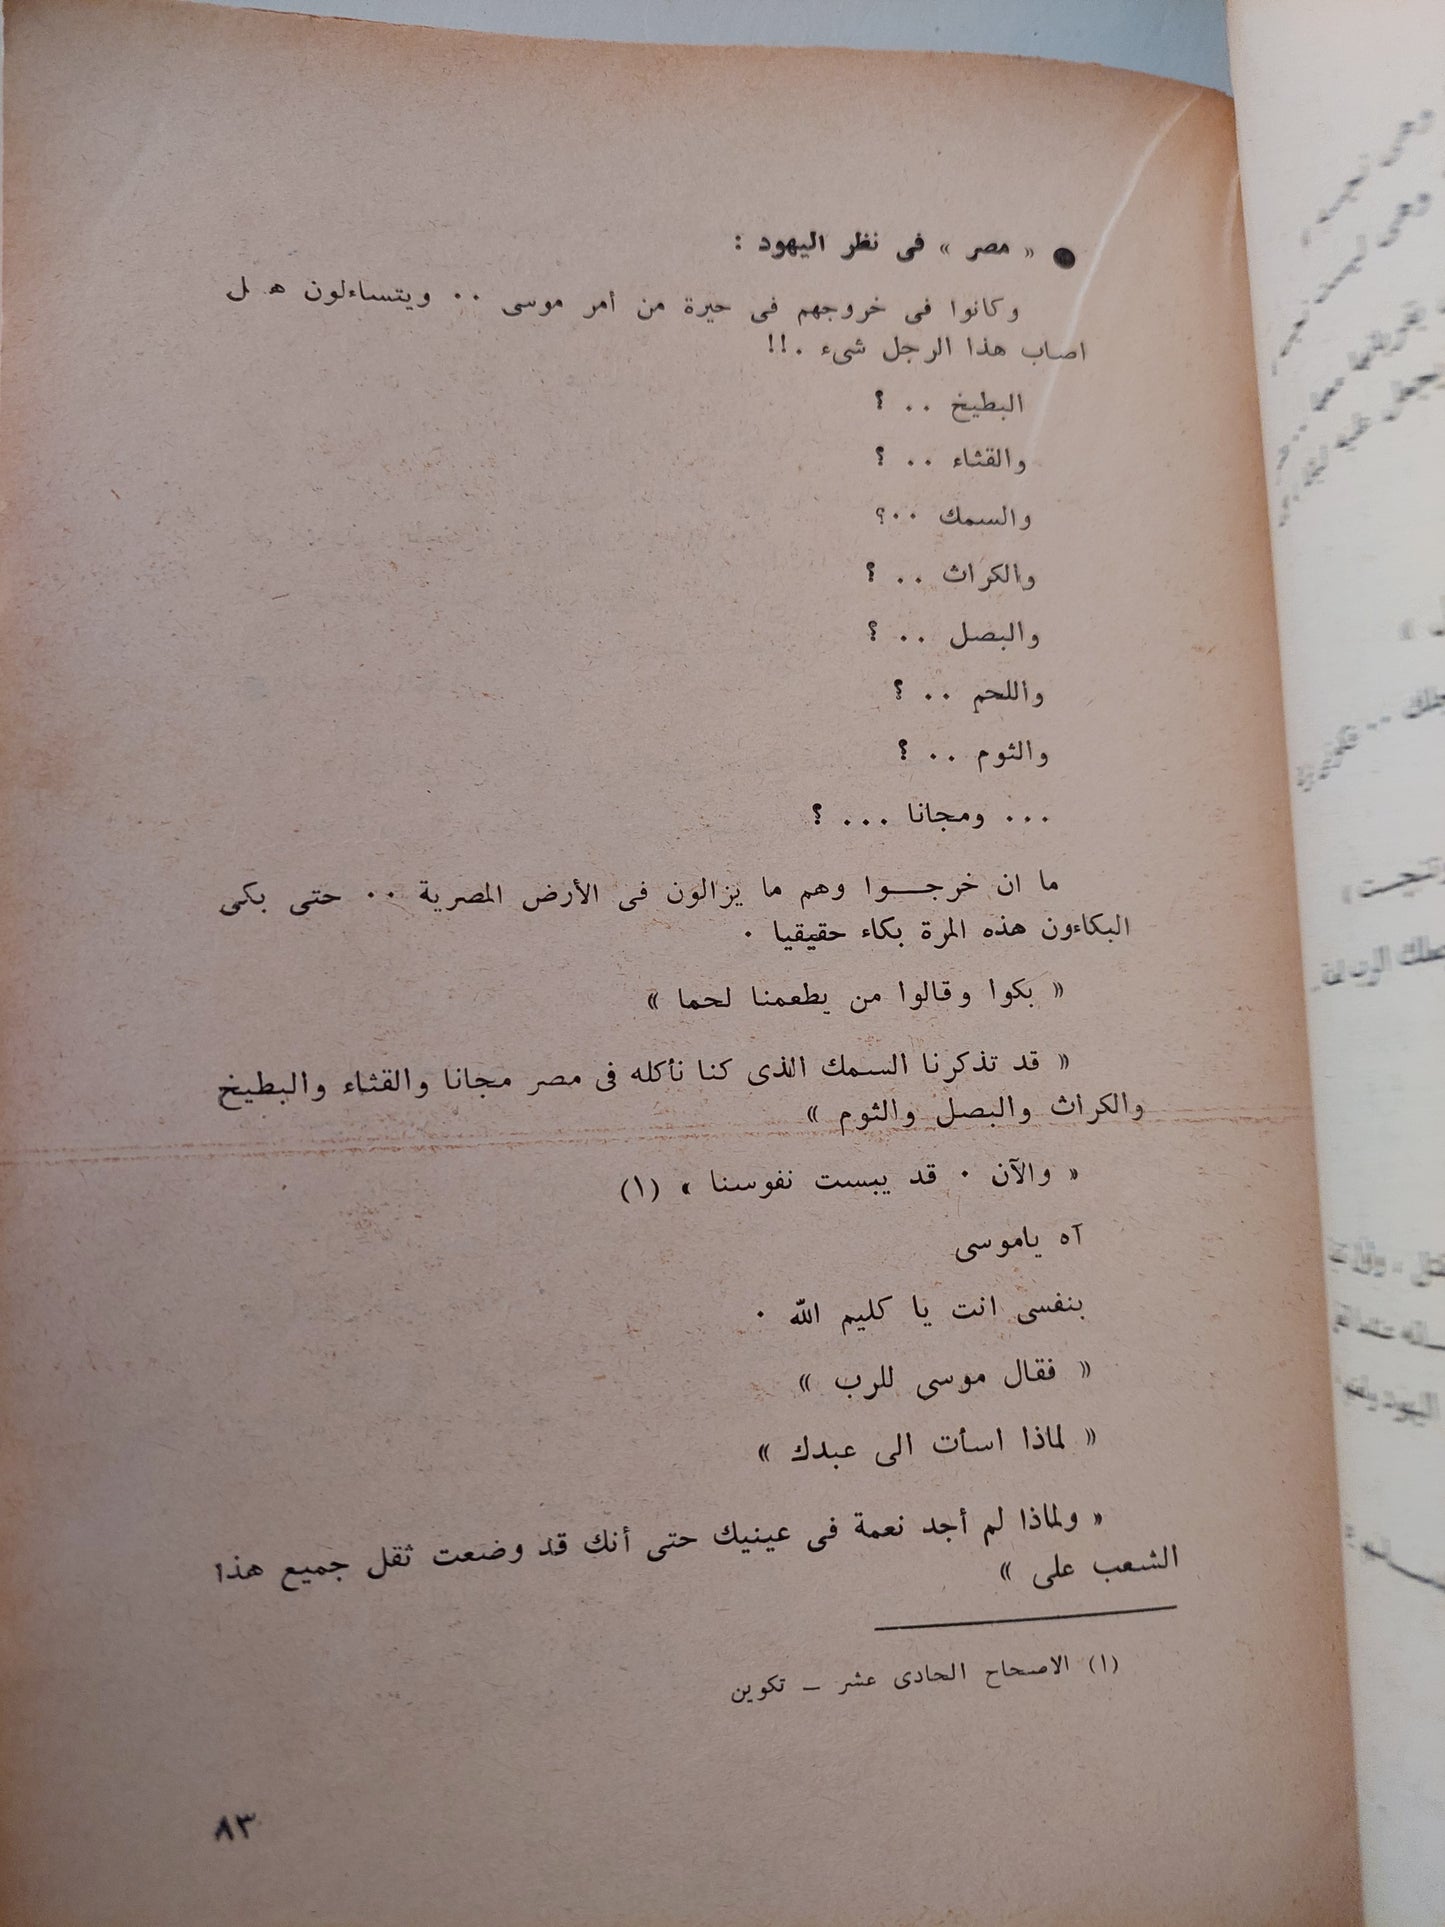 ● « مصر » فى نظر اليهود :
وكانوا فى خروجهم فى حيرة من أمر موسى ٠٠ ويتساءلون هل
اصاب هذا الرجل شىء .!!
البطيخ . . ؟
والقثاء . . ؟
والسمك ٠٠؟
والكراث . . ؟
والبصل . . ؟
واللحم . . ؟
والثوم . . ؟
. . . ومجانا . . . ؟
ما ان خرجــوا وهم ما يزالون فى الأرض المصرية ٠٠ حتى بكى
البكاءون هذه المرة بكاء حقيقيا ٠
« بكوا وقالوا من يطعمنا لحما »
« قد تذكرنا السمك الذى كنا نأكله فى مصر مجانا والقثاء والبطيخ
والكراث والبصل والثوم »
« والآن ٠ قد يبست نفوسنا » (١)
آه ياموسى
بنفسى انت يا كليم الله ٠
« فقال موسى للرب »
« لماذا اسأت الى عبدك »
« ولماذا لم أجد نعمة فى عينيك حتى أنك قد وضعت ثقل جميع هذا
الشعب على »
(١) الاصحاح الحادى عشر – تكوين
٨٣